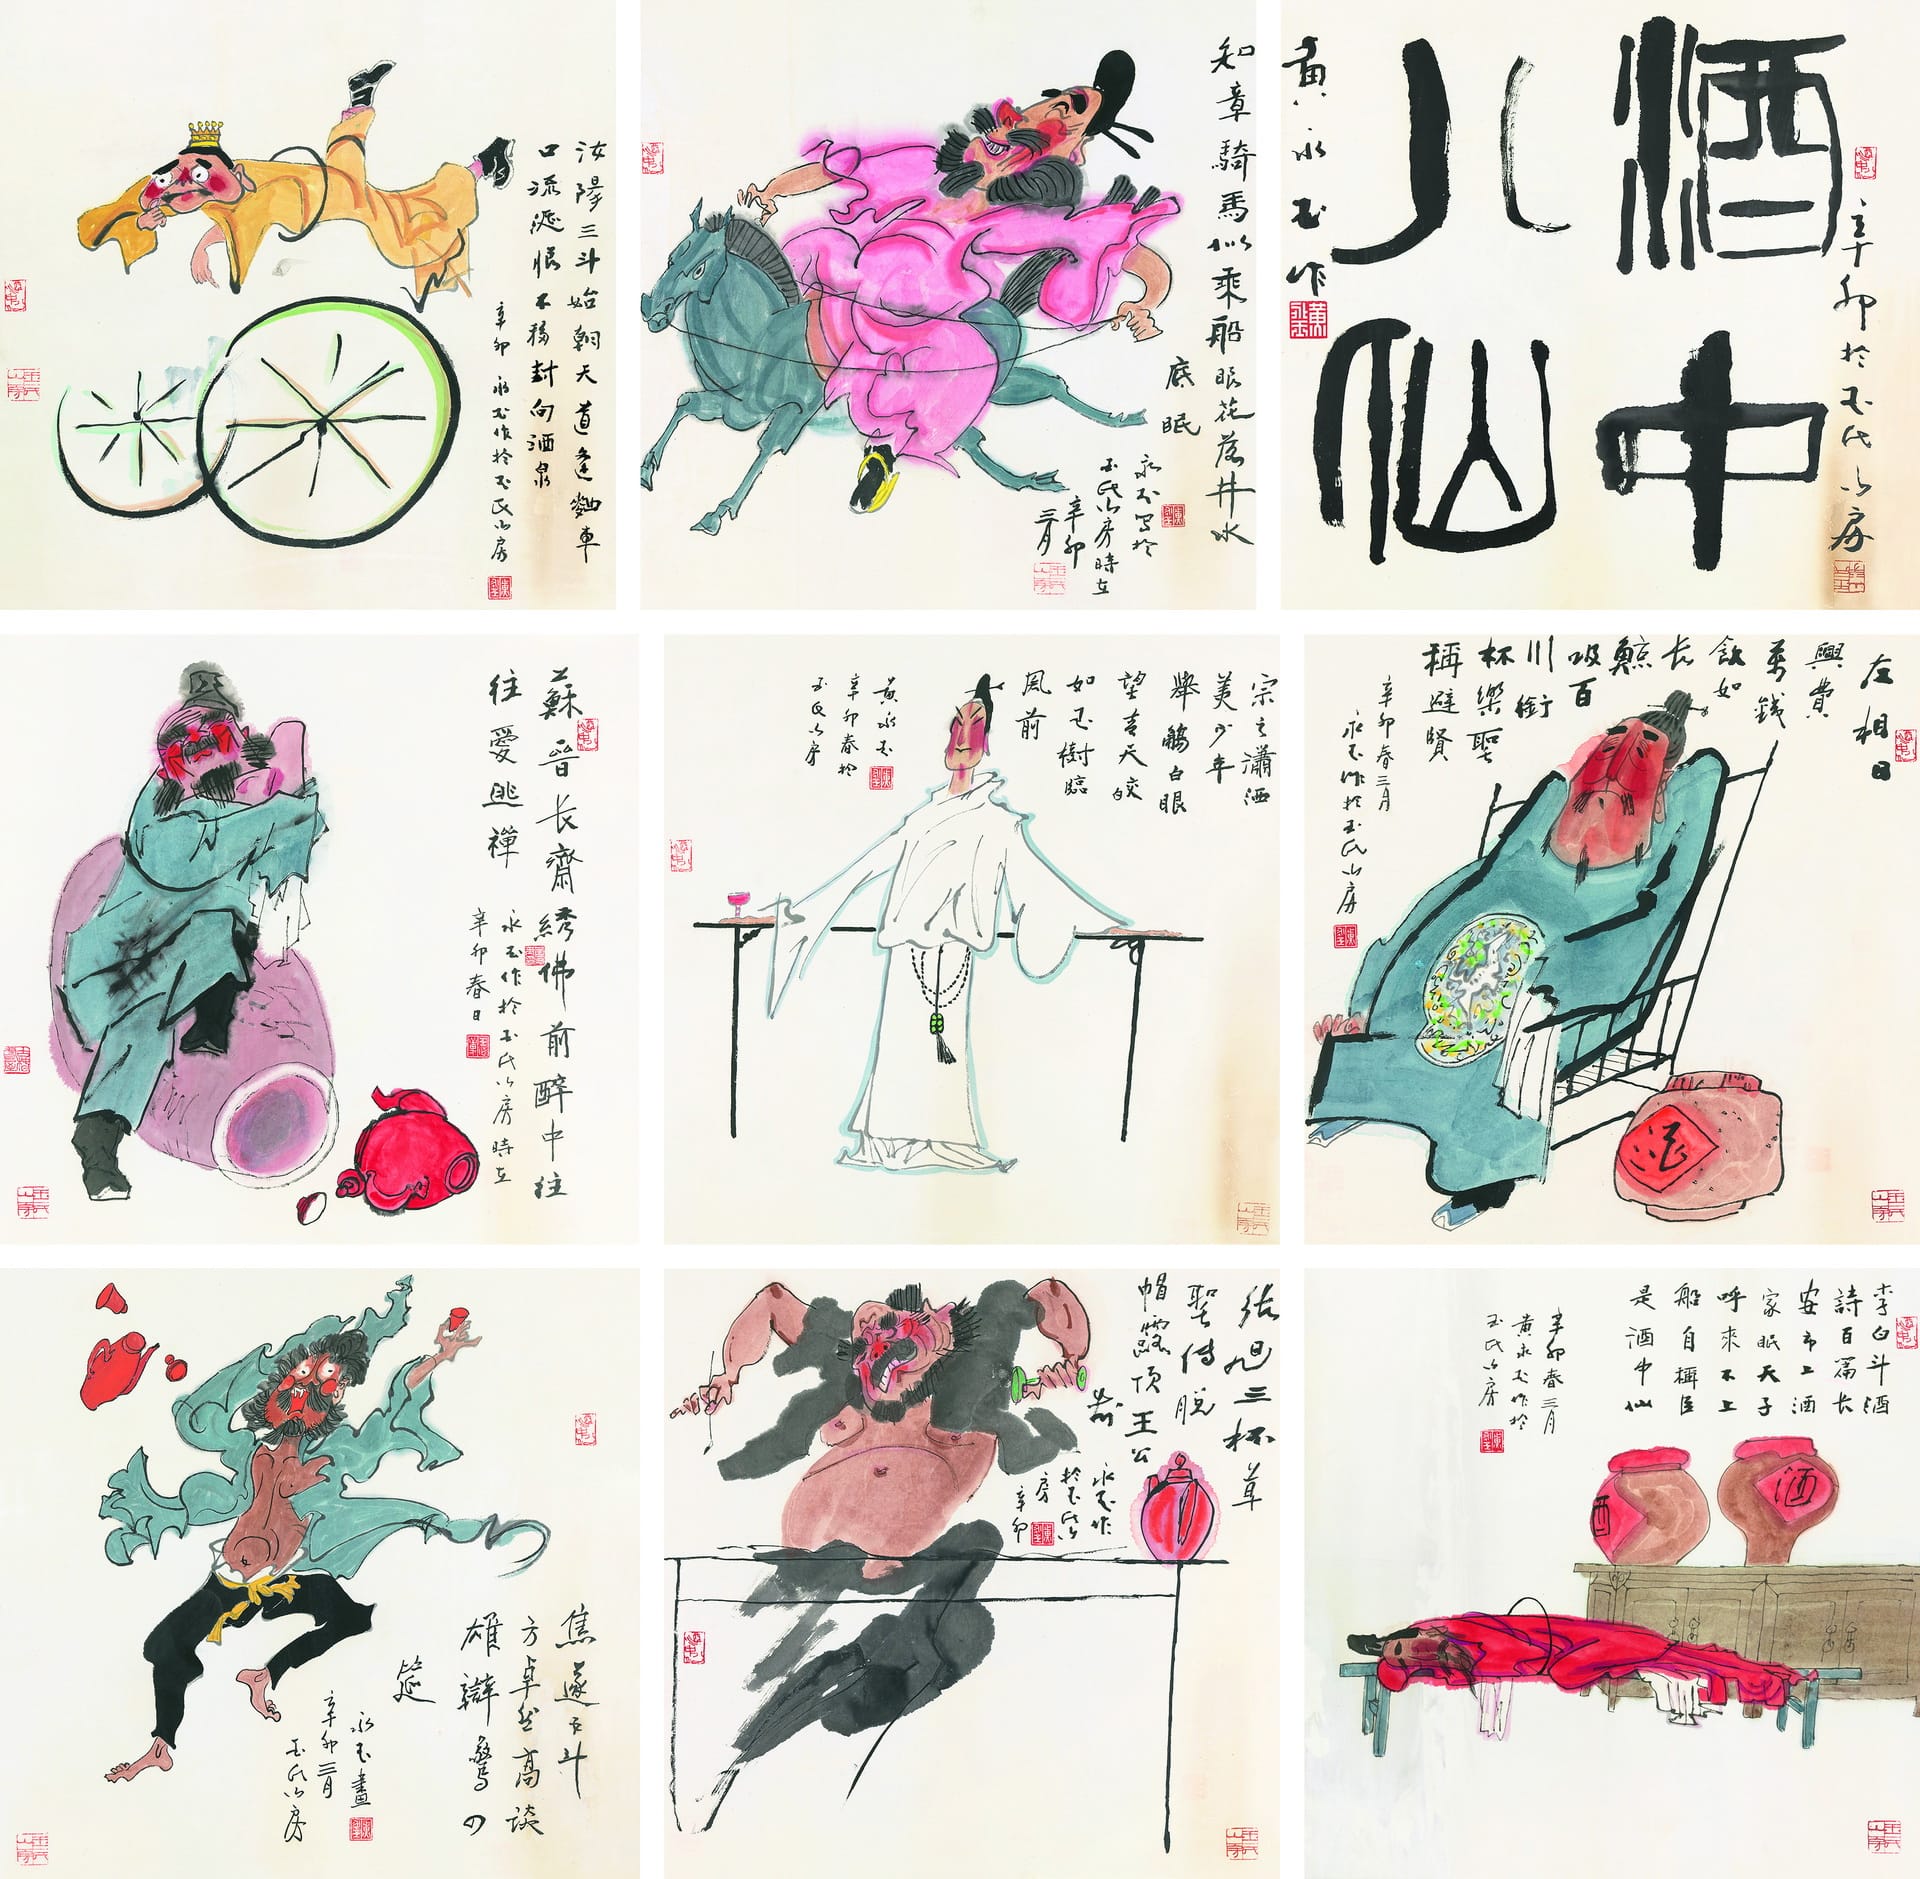 辛卯於玉氏山房
酒中
八仙
黃永玉作
知章騎馬似乘船眼花落井水
底眠
永玉写於
玉氏山房時在
辛卯
三月
汝陽三斗始朝天道逢麴車
口流涎恨不移封向酒泉
辛卯 永玉作於玉氏山房
左相日
興費
萬錢
飲如
长
鯨
吸百
川銜
杯樂聖
稱避賢
辛卯春三月
永玉作於玉氏山房
酒
宗之瀟洒
美少年
舉觴白眼
望青天皎
如玉樹臨
風前
黃永玉
辛卯春於
玉氏山房
蘇晉长齋綉佛前醉中往
往愛逃禪
永玉作於玉氏山房時在
辛卯春日
李白斗酒
詩百篇长
安市上酒
家眠天子
呼來不上
船自稱臣
是酒中仙
辛卯春三月
黃永玉作於
玉氏山房
酒
酒
张旭三杯草
聖傳脱
帽露頂王公
前
永玉作
於玉氏山
房 辛卯
焦遂五斗
方卓然高談
雄辯驚四
筵
永玉畫
辛卯三月
玉氏山房